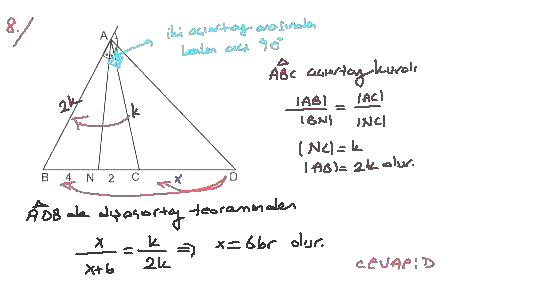 8./
iki açıortay arasından
kalan açı 90°
A
ABC açıortay kuralı
|AB| / |BN| = |AC| / |NC|
2k
k
|NC| = k
|AB| = 2k olur.
B 4 N 2 C x D
ADB de dış açıortay teoreminden
x / x+6 = k / 2k ⇒ x = 6br olur.
CEVAP: D